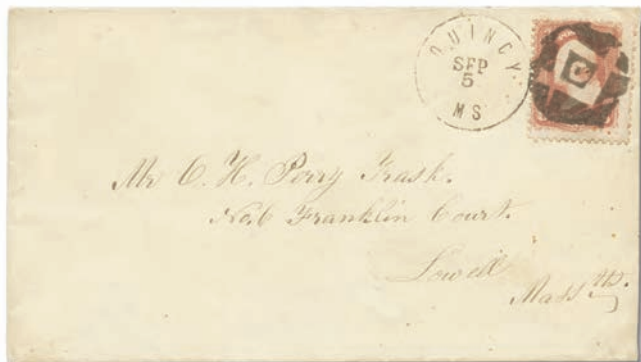 QUINCY
SEP
5
MS
Mr C. H. Perry Trask.
No. 6 Franklin Court.
Lowell
Masstts.